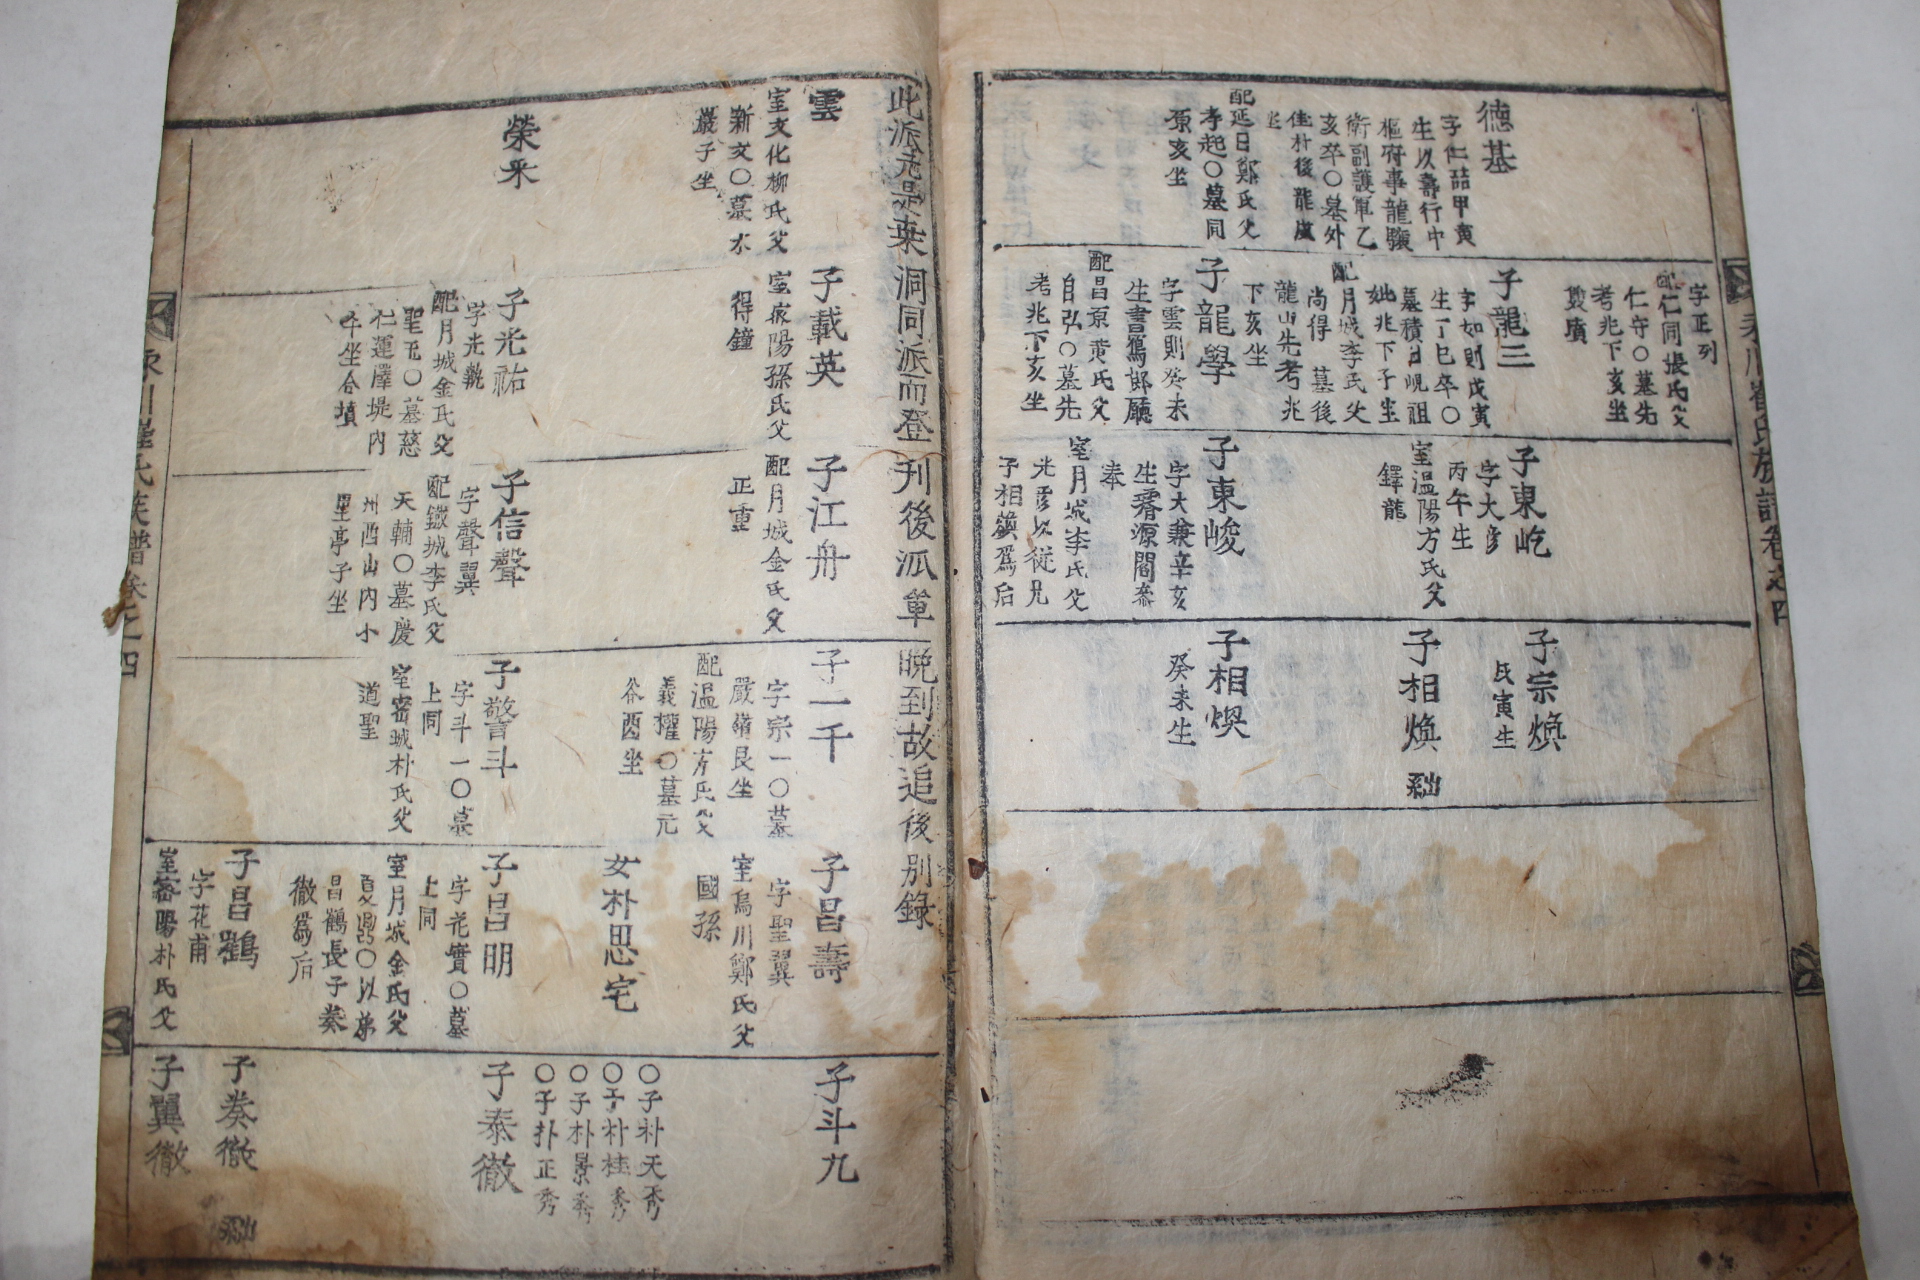 德基
字仁喆甲寅
生以壽行中
樞府事龍驤
衛副護軍乙
亥卒〇墓外
佳朴後龍
坐
配延日鄭氏父
孝起〇墓同
原亥坐
字正列
配仁同張氏父
仁守〇墓先
考兆下亥坐
雙墳
子龍三
字如則戊寅
生丁巳卒〇
墓積日峴祖
妣兆下子坐
配月城李氏父
尚得 墓後
龍山先考兆
下亥坐
子龍學
字雲則癸未
生書寫郞廳
配昌原黃氏父
自弘〇墓先
考兆下亥坐
子東屹
字大彥
丙午生
室溫陽方氏父
鐸龍
子東峻
字大兼辛亥
生濬源閣參
奉
室月城李氏父
光彥以從兄
子相鎭爲后
子宗煥
氏寅生
子相煥 系出
子相煥
癸未生
永川崔氏族譜卷之四
此派元是桒洞同派而登刊後派單晚到故追後別錄
雲
室文化柳氏父
新文〇墓水
巖子坐
榮采
子載英
室密陽孫氏父
得鐘
子光祐
字光執
配月城金氏父
聖元〇墓慈
仁運澤堤内
午坐合墳
子江舟
配月城金氏父
正重
子信聲
字聲翼
配鐵城李氏父
天輔〇墓慶
州西山内小
星亭子坐
子一千
字宗一〇墓
嚴嶺艮坐
配溫陽方氏父
義權〇墓元
谷酉坐
子警斗
字斗一〇墓
上同
室密城朴氏父
道聖
子昌壽
字聖翼
室烏川鄭氏父
國孫
女朴思宅
子昌明
字花實〇墓
上同
室月城金氏父
夏鼎〇以弟
昌鶴長子奏
徹爲后
子昌鶴
字花甫
室密陽朴氏父
子斗九
〇子朴天秀
〇子朴桂秀
〇子朴景秀
〇子朴正秀
子泰徹
子奏徹 系出
子翼徹
永川崔氏族譜卷之四